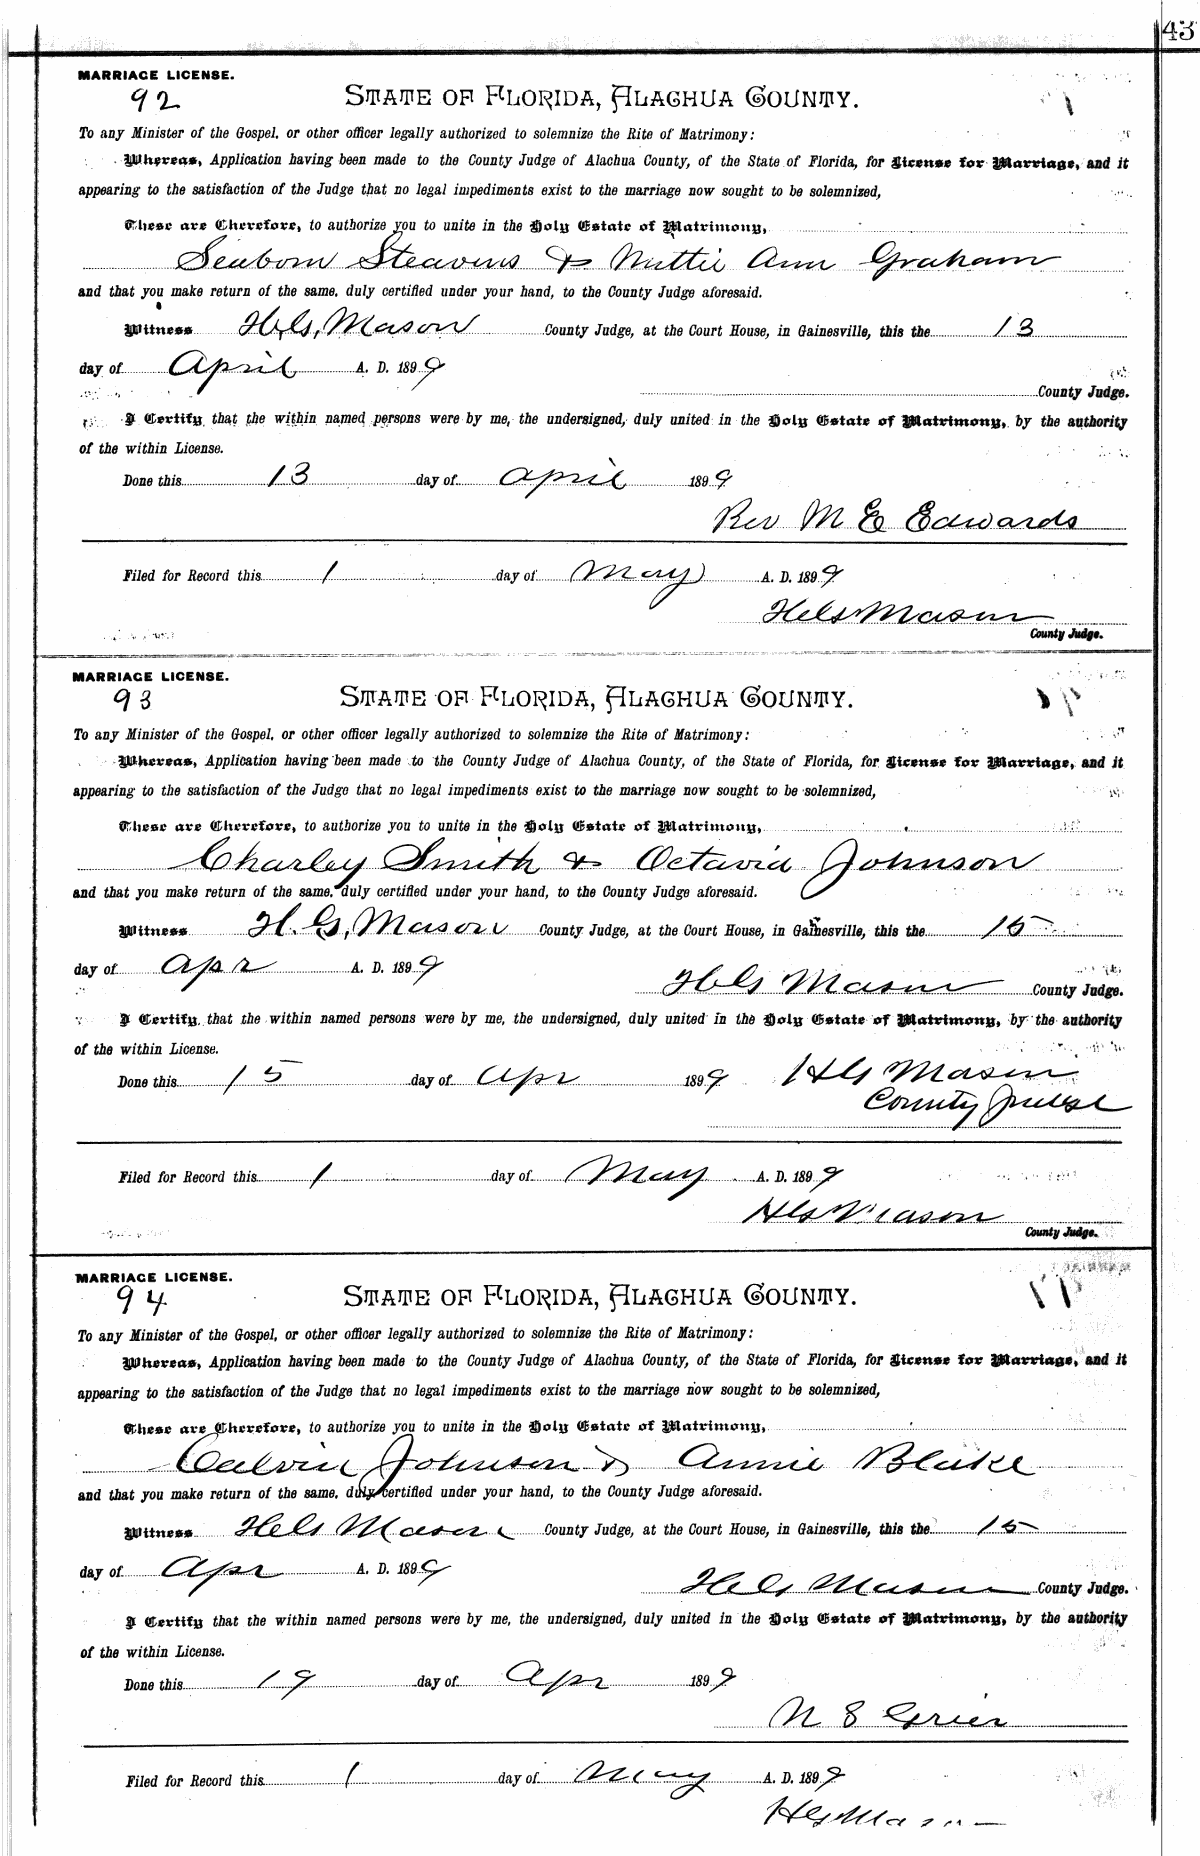 43
MARRIAGE LICENSE.
92
STATE OF FLORIDA, ALACHUA COUNTY.
To any Minister of the Gospel, or other officer legally authorized to solemnize the Rite of Matrimony:
Whereas, Application having been made to the County Judge of Alachua County, of the State of Florida, for License for Marriage, and it
appearing to the satisfaction of the Judge that no legal impediments exist to the marriage now sought to be solemnized,
These are Therefore, to authorize you to unite in the Holy Estate of Matrimony,
Seaborn Steavens & Mittie Ann Graham
and that you make return of the same, duly certified under your hand, to the County Judge aforesaid.
Witness H. G. Mason County Judge, at the Court House, in Gainesville, this the 13
day of April A. D. 1899
County Judge.
I Certify that the within named persons were by me, the undersigned, duly united in the Holy Estate of Matrimony, by the authority
of the within License.
Done this 13 day of April 1899
Rev M E Edwards
Filed for Record this 1 day of May A. D. 1899
H G Mason
County Judge.
MARRIAGE LICENSE.
93
STATE OF FLORIDA, ALACHUA COUNTY.
To any Minister of the Gospel, or other officer legally authorized to solemnize the Rite of Matrimony:
Whereas, Application having been made to the County Judge of Alachua County, of the State of Florida, for License for Marriage, and it
appearing to the satisfaction of the Judge that no legal impediments exist to the marriage now sought to be solemnized,
These are Therefore, to authorize you to unite in the Holy Estate of Matrimony,
Charley Smith & Octavia Johnson
and that you make return of the same, duly certified under your hand, to the County Judge aforesaid.
Witness H. G. Mason County Judge, at the Court House, in Gainesville, this the 15
day of Apr A. D. 1899
H G Mason County Judge.
I Certify, that the within named persons were by me, the undersigned, duly united in the Holy Estate of Matrimony, by the authority
of the within License.
Done this 15 day of Apr 1899 H G Mason
County Judge
Filed for Record this 1 day of May A. D. 1899
H G Mason
County Judge.
MARRIAGE LICENSE.
94
STATE OF FLORIDA, ALACHUA COUNTY.
To any Minister of the Gospel, or other officer legally authorized to solemnize the Rite of Matrimony:
Whereas, Application having been made to the County Judge of Alachua County, of the State of Florida, for License for Marriage, and it
appearing to the satisfaction of the Judge that no legal impediments exist to the marriage now sought to be solemnized,
These are Therefore, to authorize you to unite in the Holy Estate of Matrimony,
Calvin Johnson & Annie Blake
and that you make return of the same, duly certified under your hand, to the County Judge aforesaid.
Witness H G Mason County Judge, at the Court House, in Gainesville, this the 15
day of Apr A. D. 1899
H G Mason County Judge.
I Certify that the within named persons were by me, the undersigned, duly united in the Holy Estate of Matrimony, by the authority
of the within License.
Done this 19 day of Apr 1899
N S Grier
Filed for Record this 1 day of May A. D. 1899
H G Mason